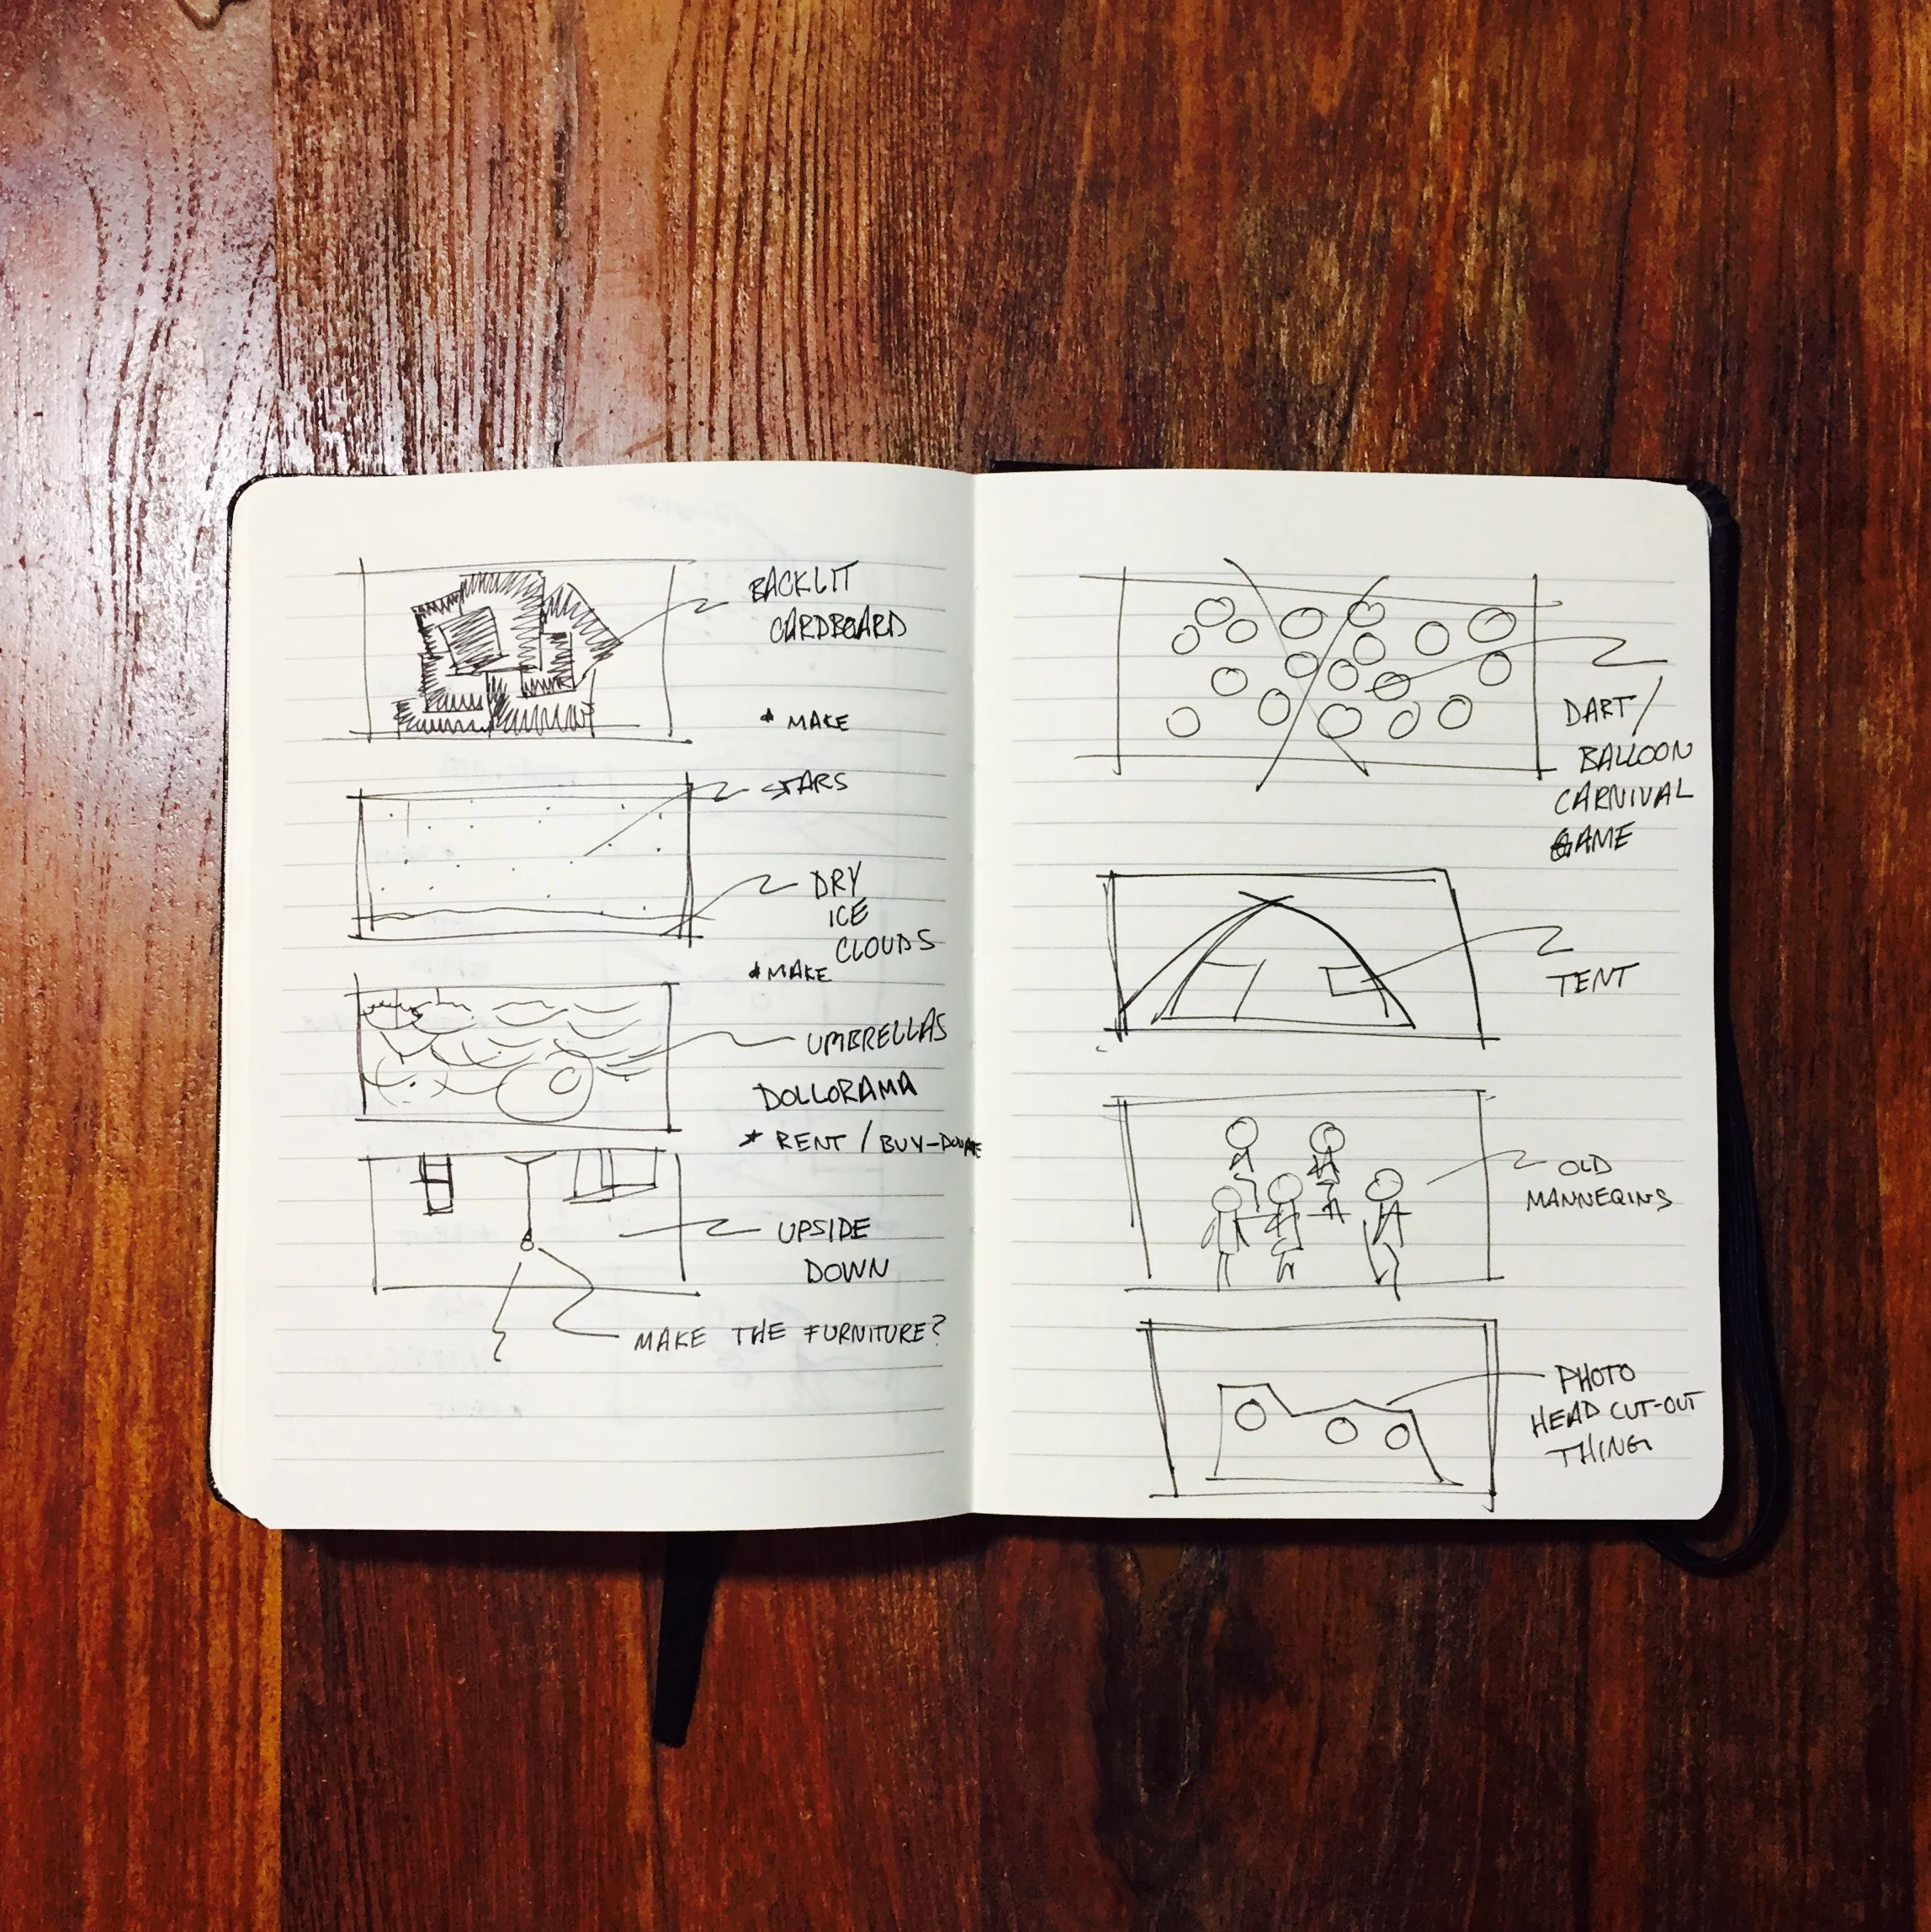 BACKLIT
CARDBOARD
* MAKE
STARS
DRY
ICE
CLOUDS
* MAKE
UMBRELLAS
DOLLORAMA
* RENT / BUY-DONATE
UPSIDE
DOWN
MAKE THE FURNITURE?
DART/
BALLOON
CARNIVAL
GAME
TENT
OLD
MANNEQINS
PHOTO
HEAD CUT-OUT
THING